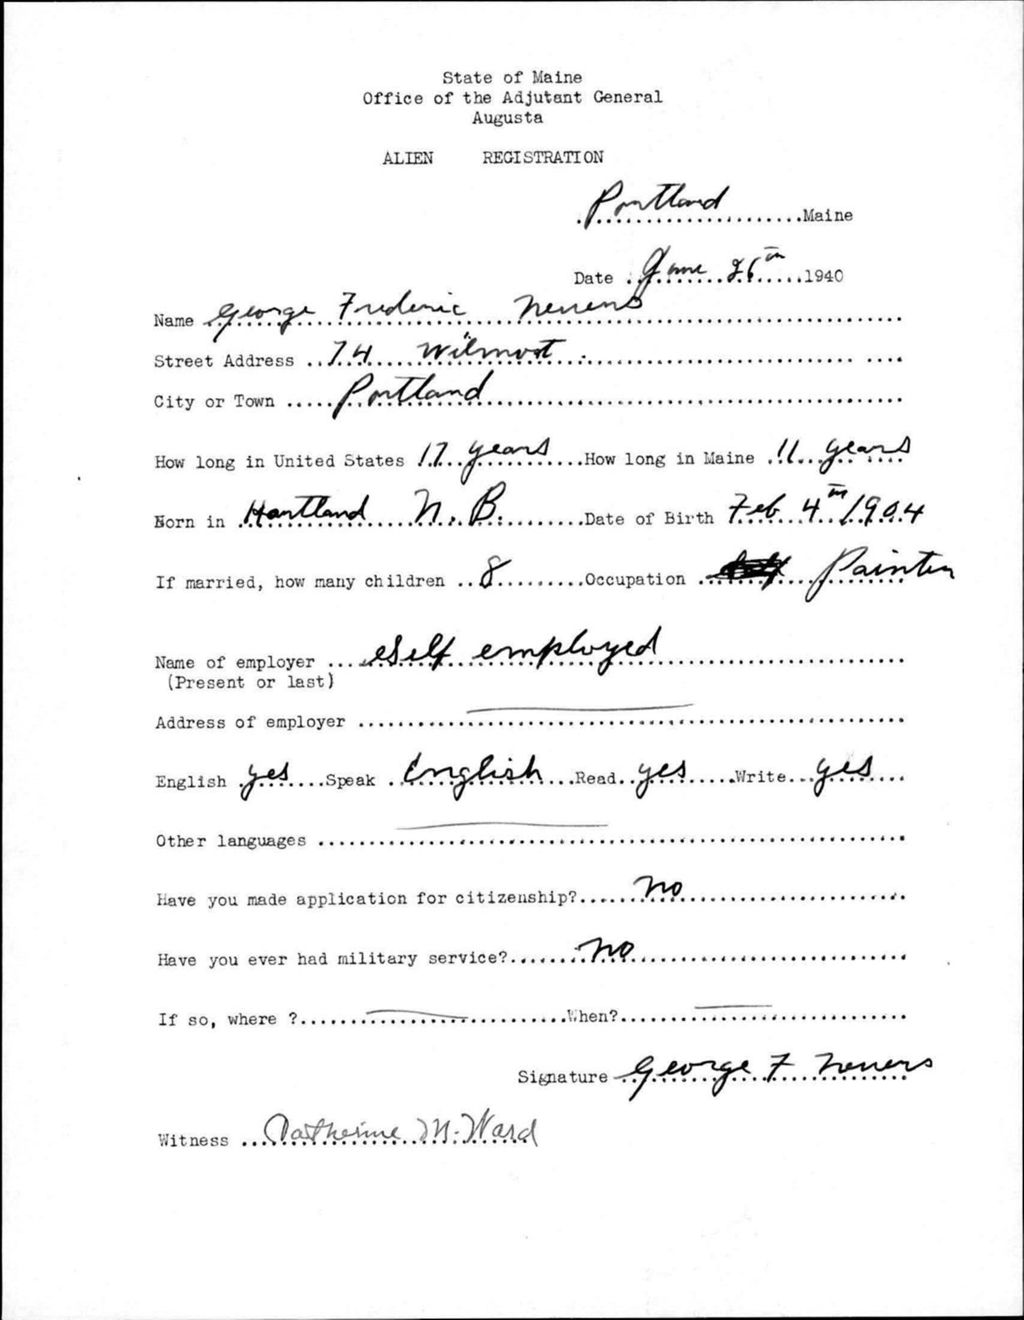 State of Maine
Office of the Adjutant General
Augusta
ALIEN REGISTRATION
Portland Maine
Date June 26th 1940
Name George Frederic Nevers
Street Address 74 Wilmot.
City or Town Portland
How long in United States 17 years How long in Maine 11 years
Born in Hartland N.B. Date of Birth Feb 4th 1904
If married, how many children 8 Occupation Painter
Name of employer Self employed
(Present or last)
Address of employer
English yes Speak English Read yes Write yes
Other languages
Have you made application for citizenship? No
Have you ever had military service? No
If so, where ? When?
Signature George F Nevers
Witness Catherine M. Ward